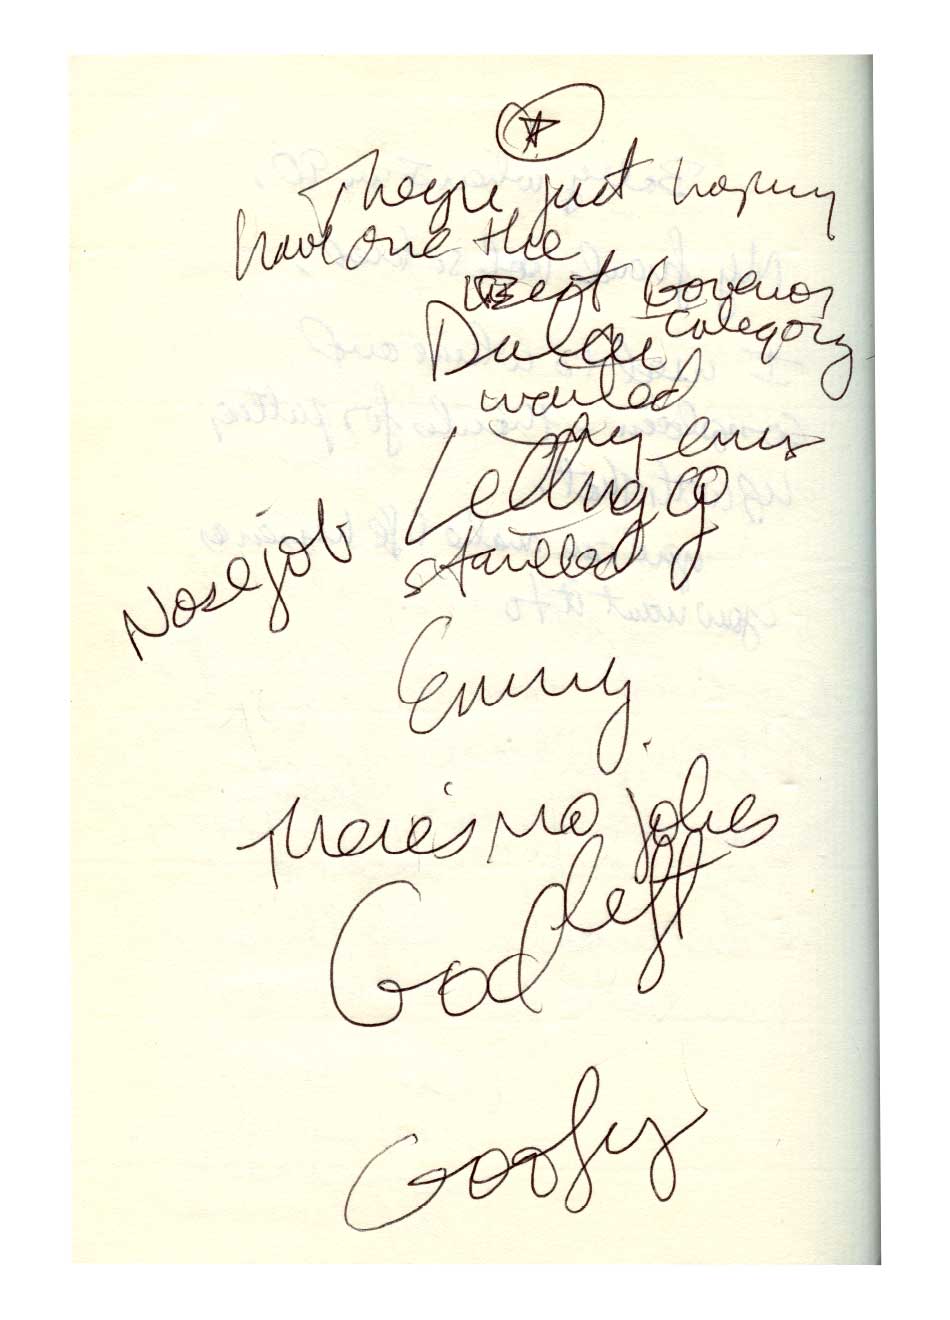 They're just happy
have one the
Best Govenor
Category
wanted
my envy
Letting go
started
Nose job
Emmy.
There's no jokes
left
God
Goofy